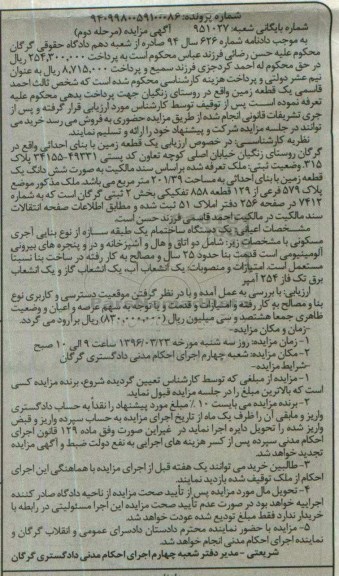 شماره پرونده: ۹۴۰۹۹۸۰۰۵۹۱۰۰۰۸۶
شماره بایگانی شعبه: ۹۵۱۰۲۷ آگهی مزایده (مرحله دوم)
به موجب دادنامه شماره ۶۲۶ سال ۹۴ صادره از شعبه دهم دادگاه حقوقی گرگان
محکوم علیه حسن رضائی فرزند عباس محکوم است به پرداخت ۲۵۴,۳۰۰,۰۰۰ ریال
در حق محکوم له احمد کردجزی فرزند سمیع و پرداخت ۸,۷۱۵,۰۰۰ ریال به عنوان
نیم عشر دولتی و پرداخت هزینه کارشناسی محکوم شده است که شخص ثالث احمد
قاسمی یک قطعه زمین واقع در روستای زنگیان جهت پرداخت بدهی محکوم علیه
تعرفه نموده است پس از توقیف توسط کارشناس مورد ارزیابی قرار گرفته و پس از
جری تشریفات قانونی انجام شده از طریق مزایده حضوری به فروش می رسد خرید می
توانند در جلسه مزایده شرکت و پیشنهاد خود را ارائه و تسلیم نمایند.
نظریه کارشناسی: در خصوص ارزیابی یک قطعه زمین با بنای احداثی واقع در
گرگان روستای زنگیان خیابان اصلی کوچه تعاون کد پستی ۴۹۳۳۱-۳۴۱۵۵ پلاک
۳۱۵. وضعیت ثبتی: ملک تعرفه شده بر اساس سند مالکیت به صورت شش دانگ یک
قطعه زمین با بنای احداثی به مساحت ۲۰۱/۳۹ متر مربع می باشد. ملک مذکور موضع
پلاک ۵۷۹ فرعی از ۱۲۹ قطعه ۸۵۸ تفکیکی بخش ۲ ثبتی گرگان است که به شماره
۷۴۱۲ در صفحه ۲۵۶ دفتر املاک ۵۱ ثبت شده و مطابق اطلاعات صفحه انتقالات
سند مالکیت در مالکیت احمد قاسمی فرزند حسن است.
مشخصات اعیانی: یک دستگاه ساختمام یک طبقه سازه از نوع بنایی آجری
مسکونی با مشخصات زیر: شامل دو اتاق و هال و آشپزخانه و در و پنجره های بیرونی
آلومینیومی است قدمت بنا حدود ۲۵ سال و مصالح به کار رفته در ساخت بنا نسبتا
مستعمل است. امتیازات و منصوبات: یک انشعاب آب، یک انشعاب گاز و یک انشعاب
برق تک فاز ۲۵۴ آمپر
ارزیابی: با بررسی به عمل آمده و با در نظر گرفتن موقعیت دسترسی و کاربری نوع
بنا و مصالح به کار رفته و امتیازات و قدمت و با توجه به سهم عرصه و اعیان و وضعیت
ظاهری جمعا هشتصد و سی میلیون ریال (۸۳۰,۰۰۰,۰۰۰) ریال برآورد می گردد.
-زمان و مکان مزایده-
۱-زمان مزایده: روز سه شنبه مورخه ۱۳۹۶/۰۳/۲۳ ساعت ۹ الی ۱۰ صبح
۲-مکان مزایده: شعبه چهارم اجرای احکام مدنی دادگستری گرگان
-شرایط مزایده-
۱-مزایده از مبلغی که توسط کارشناس تعیین گردیده شروع، برنده مزایده کسی
است که بالاترین مبلغ را در جلسه مزایده قبول نماید.
۲-برنده مزایده می بایست ۱۰٪ مبلغ مورد پیشنهاد را نقدا به حساب دادگستری
واریز و مابقی آن را ظرف یک ماه از تاریخ اجرای مزایده به حساب سپرده واریز و قبض
واریز شده را تحویل دایره اجرا نماید در غیراین صورت وفق ماده ۱۲۹ قانون اجرای
احکام مدنی سپرده پس از کسر هزینه های اجرایی به نفع دولت ضبط و آگهی مزایده
تجدید خواهد شد.
۳-طالبین خرید می توانند یک هفته قبل از اجرای مزایده با هماهنگی این اجرای
احکام از ملک توقیف شده بازدید نمایند.
۴-تحویل مال مورد مزایده پس از تأیید صحت مزایده از ناحیه دادگاه صادر کننده
اجراییه خواهد بود در صورت عدم تأیید صحت مزایده این اجرا مسئولیتی در رابطه با
خریدار ندارد فقط مبلغ تودیع شده عودت خواهد شد.
۵-مزایده با حضور نماینده محترم دادستان دادسرای عمومی و انقلاب گرگان و
نماینده اجرای احکام مدنی انجام خواهد شد.
شریعتی - مدیر دفتر شعبه چهارم اجرای احکام مدنی دادگستری گرگان